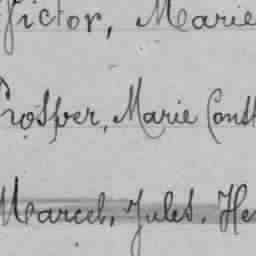 Victor, Marie
Prosper, Marie Const
Marcel, Jules. He